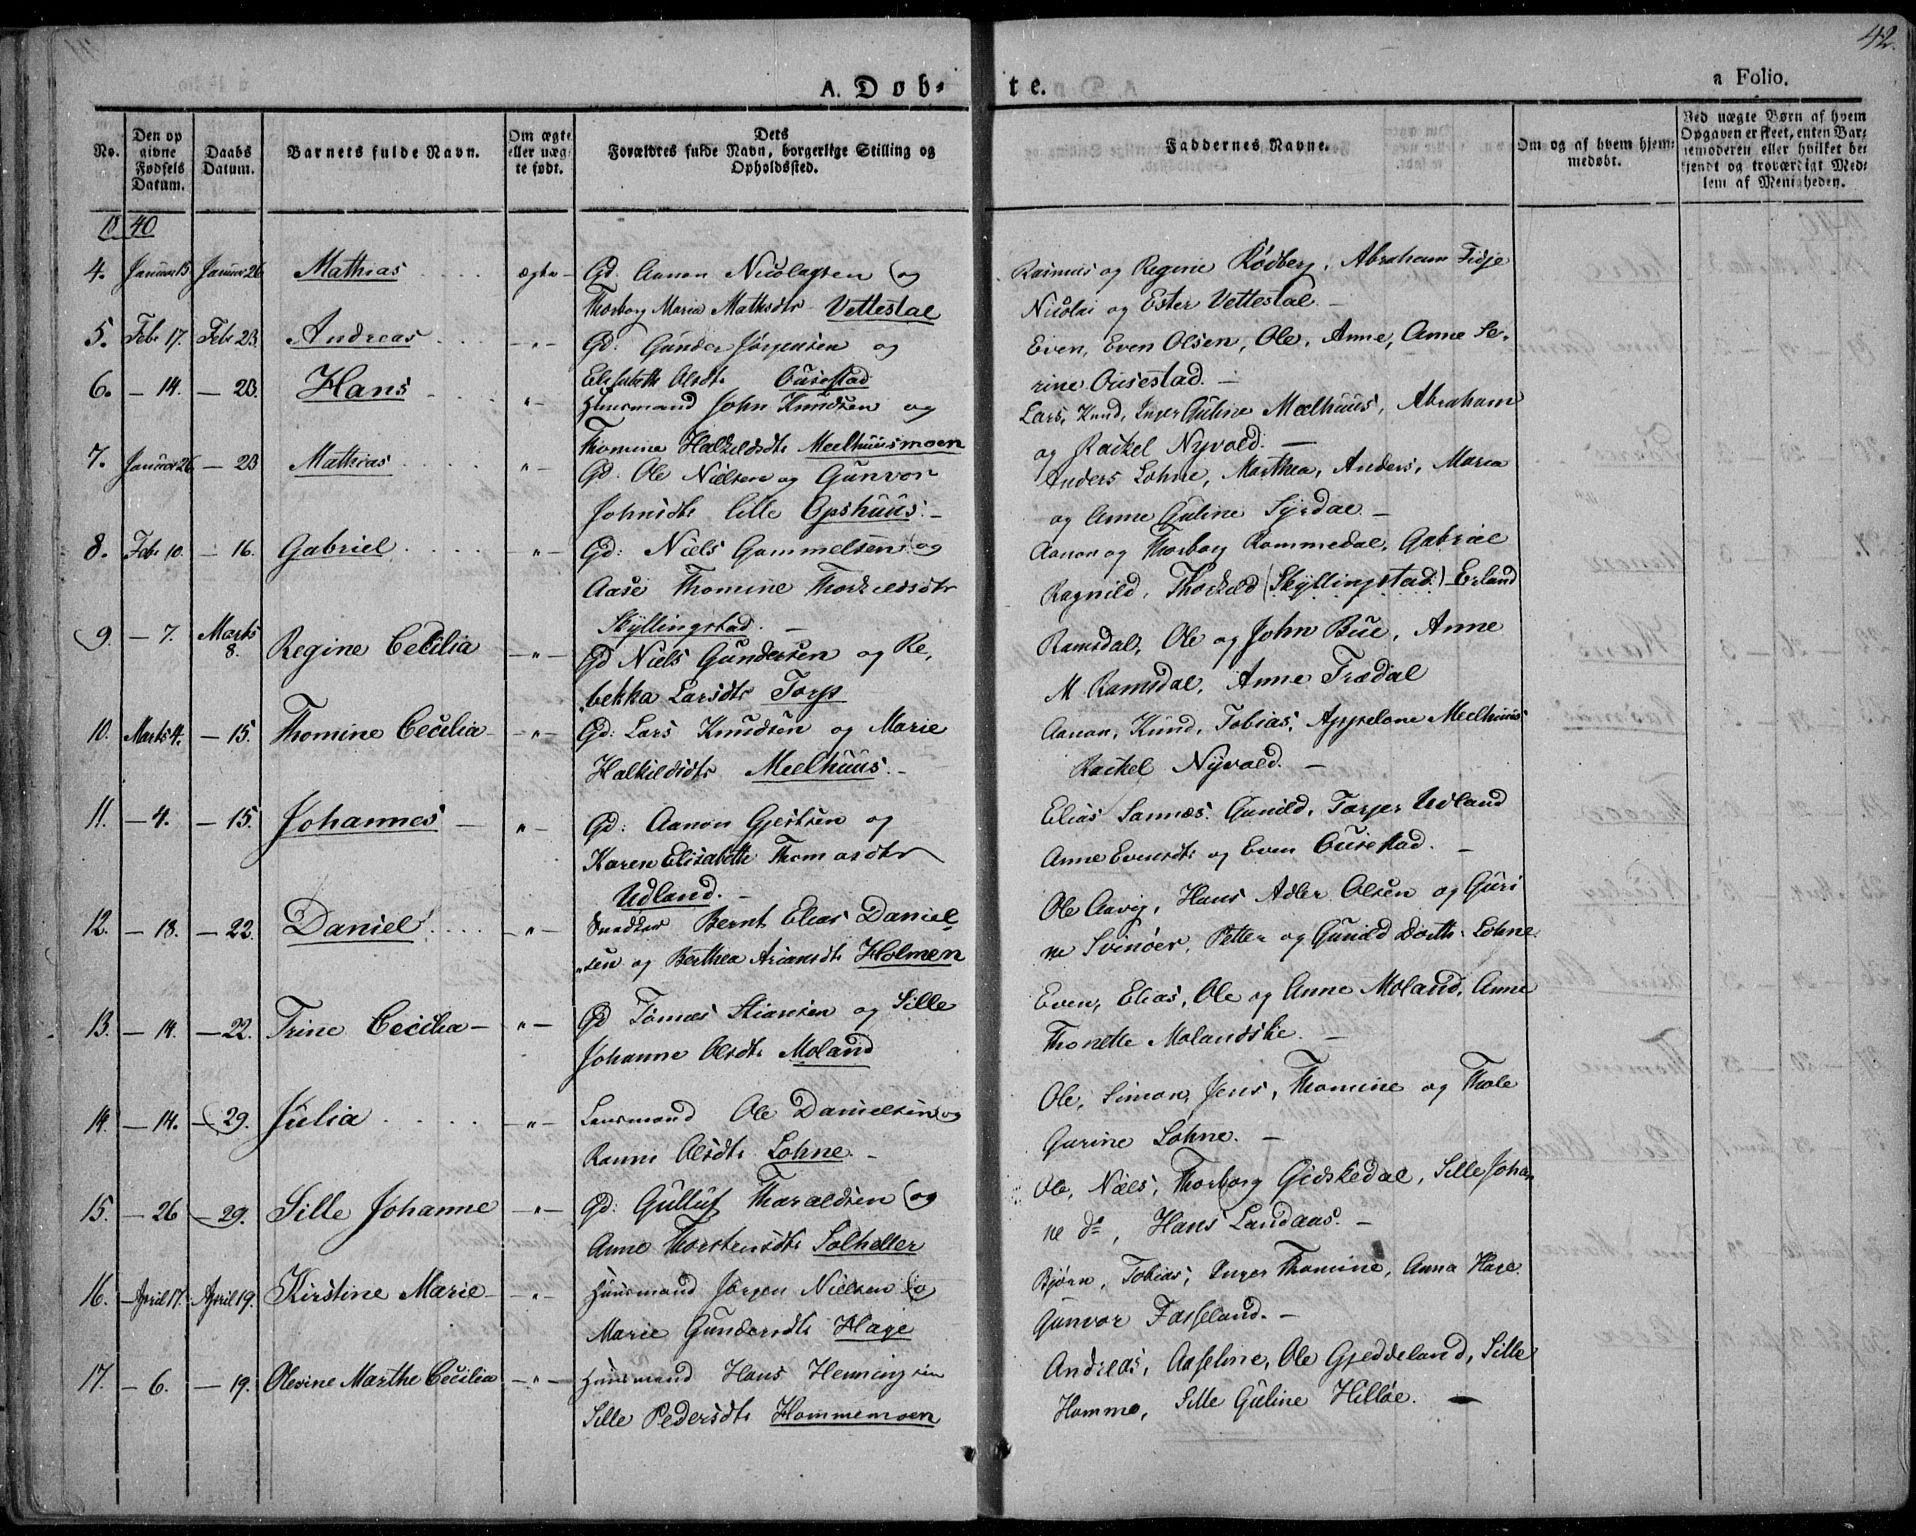 42.
A. Døb-
te.
a Folio.
No.
Den op
givne
Fødsels
Datum.
Daabs
Datum.
Barnets fulde Navn.
Om ægte
eller uæg
te født.
Dets
Forældres fulde Navn, borgerlige Stilling og
Opholdssted.
Faddernes Navne.
Om og af hvem hjem-
medøbt.
Ved uægte Børn af hvem
Opgaven er skeet, enten Bar-
nemoderen eller hvilket be-
kjendt og troværdigt Med-
lem af Menigheden.
1840
4. Januar 15 Januar 26 Mathias ægte Gd. Aanon Nicolaysen og Rasmus og Regine Rødberg, Abraham Fidje
Thorborg Maria Mathsdtr Vettestal Nicolai og Ester Vettestal
5. Febr 17. Febr 23. Andreas - " - Gd: Gunder Jørgensen og Even, Even Olsen, Ole, Anne, Anne Se-
Elisabeth Olsdtr Ousestad rine Ousestad.
6. - 14. - 23. Hans " - Huusmand John Knudsen og Lars, Knud, Inger Guline Mælhuus, Abraham
Thomine Halkildsdtr Meelhuusmoen og Rackel Nyvold.
7. Januar 26 - 23 Mathias " - Gd. Ole Nielsen og Gunvor Anders Lohne, Marthea, Anders, Maria
Johnsdtr Lille Opshuus og Anne Guline Syrdal
8. Febr 10. - 16. Gabriel - " - Gd: Niels Gammelsen og Aanon og Thorborg Rommedal, Gabriel
Aase Thomine Thorkildsdtr Ragnild, Thorkild (Skyllingstad) Erland
Skyllingstad.
9. - 7. Marts 8. Regine Cecilia - " - Gd Niels Gundersen og Re, Ramsdal, Ole og John Bue, Anne
bekka Larsdtr Torp M Ramsdal, Anne Trædal
10. Marts 4. - 15. Thomine Cecilia - " - Gd: Lars Knudsen og Marie Aanon, Knud, Tobias, Appelone Meelhuus
Halkildsdtr Meelhuus. Rackel Nyvold.
11. - 4. - 15. Johannes " - Gd: Aanon Gjertsen og Elias Sannæs. Gunild, Torjer Udland
Karen Elisabeth Thomasdtr Anne Evensdtr og Even Ousestad.
Udland.
12. - 13. - 22. Daniel - " - Snedker Bernt Elias Daniel Ole Aavig, Hans Adler Olsen og Guri
sen og Berthea Ariansdtr Holmen ne Svinøer, Petter og Gunild Dorth. Lohne
13. - 14. - 22. Trine Cecilia - " - Gd Tønnes Stiansen og Sille Even, Elias, Ole og Anne Moland, Anne
Johanne Olsdtr Moland Thonette Molandslie.
14. - 14. - 29. Julia - " - Lensmand Ole Danielsen og Ole, Simon, Jens, Thomine og Thale
Ranni Olsdtr Lohne. Gurine Lohne.
15. - 26 - 29. Sille Johanne - " - Gd: Gulluf Tharaldsen og Ole, Niels, Thorborg Gidskedal, Sille Johan
Anne Thorstensdtr Solheller ne do, Hans Landaas.
16. - April 17. April 19. Kirstine Marie - " - Huusmand Jørgen Nielsen o Bjørn, Tobias, Inger Thomine, Anna Hage.
Marie Gundersdtr Hage Gunvor Fasseland.
17. - 6. - 19. Olevine Marthe Cecilia - " - Huusmand Hans Henningsen Andreas, Asseline, Ole Gjeddeland, Sille
Sille Pedersdtr Hommemoen Homme, Sille Guline Hilløe.